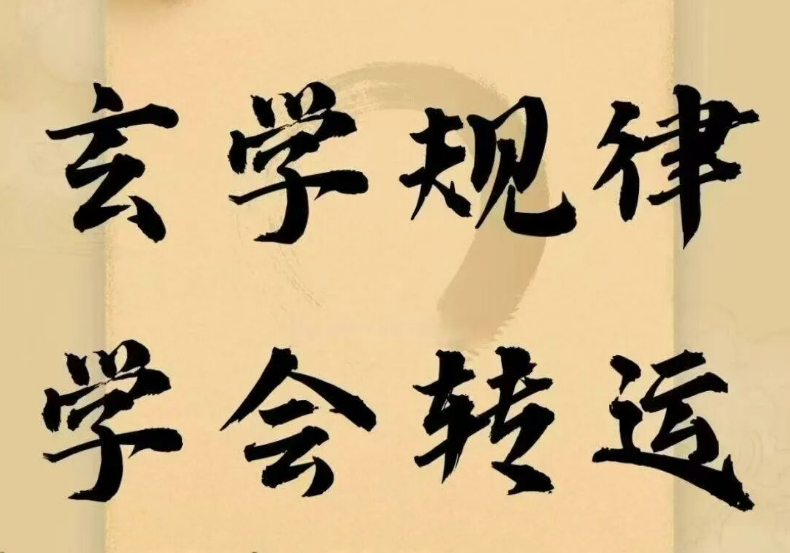 玄学规律
学会转运